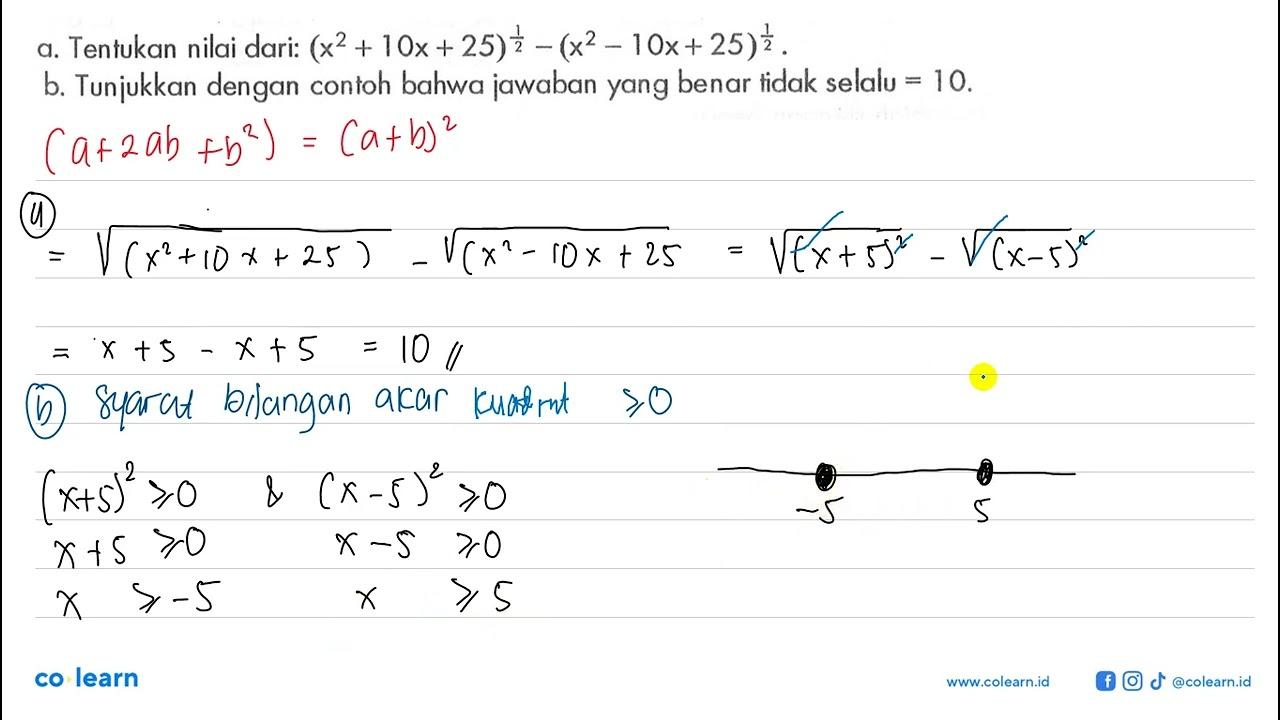 a. Tentukan nilai dari: (x² + 10x + 25)^½ – (x² – 10x + 25)^½ .
b. Tunjukkan dengan contoh bahwa jawaban yang benar tidak selalu = 10.
(a+2ab +b²) = (a+b)²
a
= √(x²+10x+25) - √(x² - 10x + 25 = √(x+5)² - √(x-5)²
= x + 5 - x + 5 = 10 //
b Syarat bilangan akar kuadrat ⩾0
(x+5)² ⩾0 & (x-5)² ⩾0
x+5 ⩾0 x-5 ⩾0
x ⩾-5 x ⩾ 5
-5 5
co learn
www.colearn.id @colearn.id